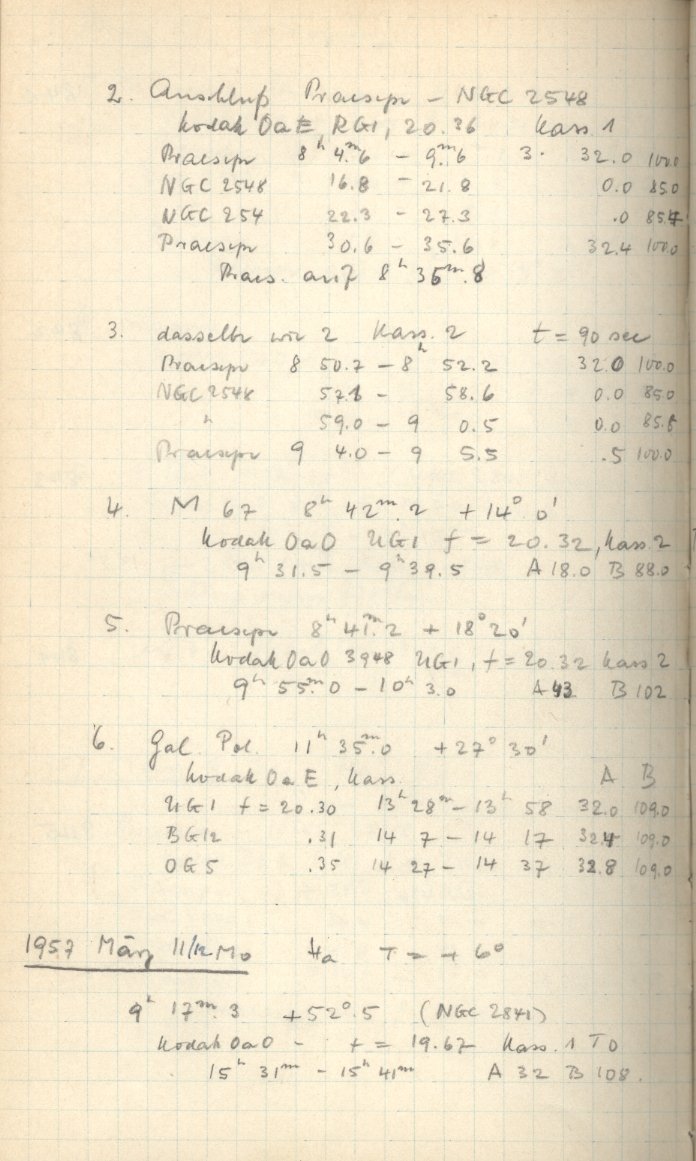 2. Anschluß Praesepe – NGC 2548
Kodak OaE, RG1, 20.36 Kass. 1
Praesepe 8ʰ 4ᵐ.6 – 9ᵐ.6 3. 32.0 100.0
NGC 2548 16.8 – 21.8 0.0 85.0
NGC 254 22.3 – 27.3 .0 85.4
Praesepe 30.6 – 35.6 32.4 100.0
Praes. auf 8ʰ 36ᵐ.8
3. dasselbe wie 2 Kass. 2 t = 90 sec
Praesepe 8 50.7 – 8ʰ 52.2 32.0 100.0
NGC 2548 57.1 – 58.6 0.0 85.0
" 59.0 – 9 0.5 0.0 85.5
Praesepe 9 4.0 – 9 5.5 .5 100.0
4. M 67 8ʰ 42ᵐ.2 +14° 0'
Kodak OaO UG1 f = 20.32, Kass. 2
9ʰ 31.5 – 9ʰ 39.5 A 18.0 B 88.0
5. Praesepe 8ʰ 41ᵐ.2 + 18° 20'
Kodak OaO 3948 UG1, f = 20.32 Kass 2
9ʰ 55ᵐ.0 – 10ʰ 3.0 A 43 B 102
6. Gal. Pol. 11ʰ 35ᵐ.0 +27° 30'
Kodak OaE, Kass. A B
UG1 f = 20.30 13ʰ 28ᵐ – 13ʰ 58 32.0 109.0
BG12 .31 14 7 – 14 17 32.4 109.0
OG5 .35 14 27 – 14 37 32.8 109.0
1957 März 11/12 Mo Ha T = + 6°
9ʰ 17ᵐ.3 +52°.5 (NGC 2841)
Kodak OaO – f = 19.67 Kass. 1 TO
15ʰ 31ᵐ – 15ʰ 41ᵐ A 32 B 108.